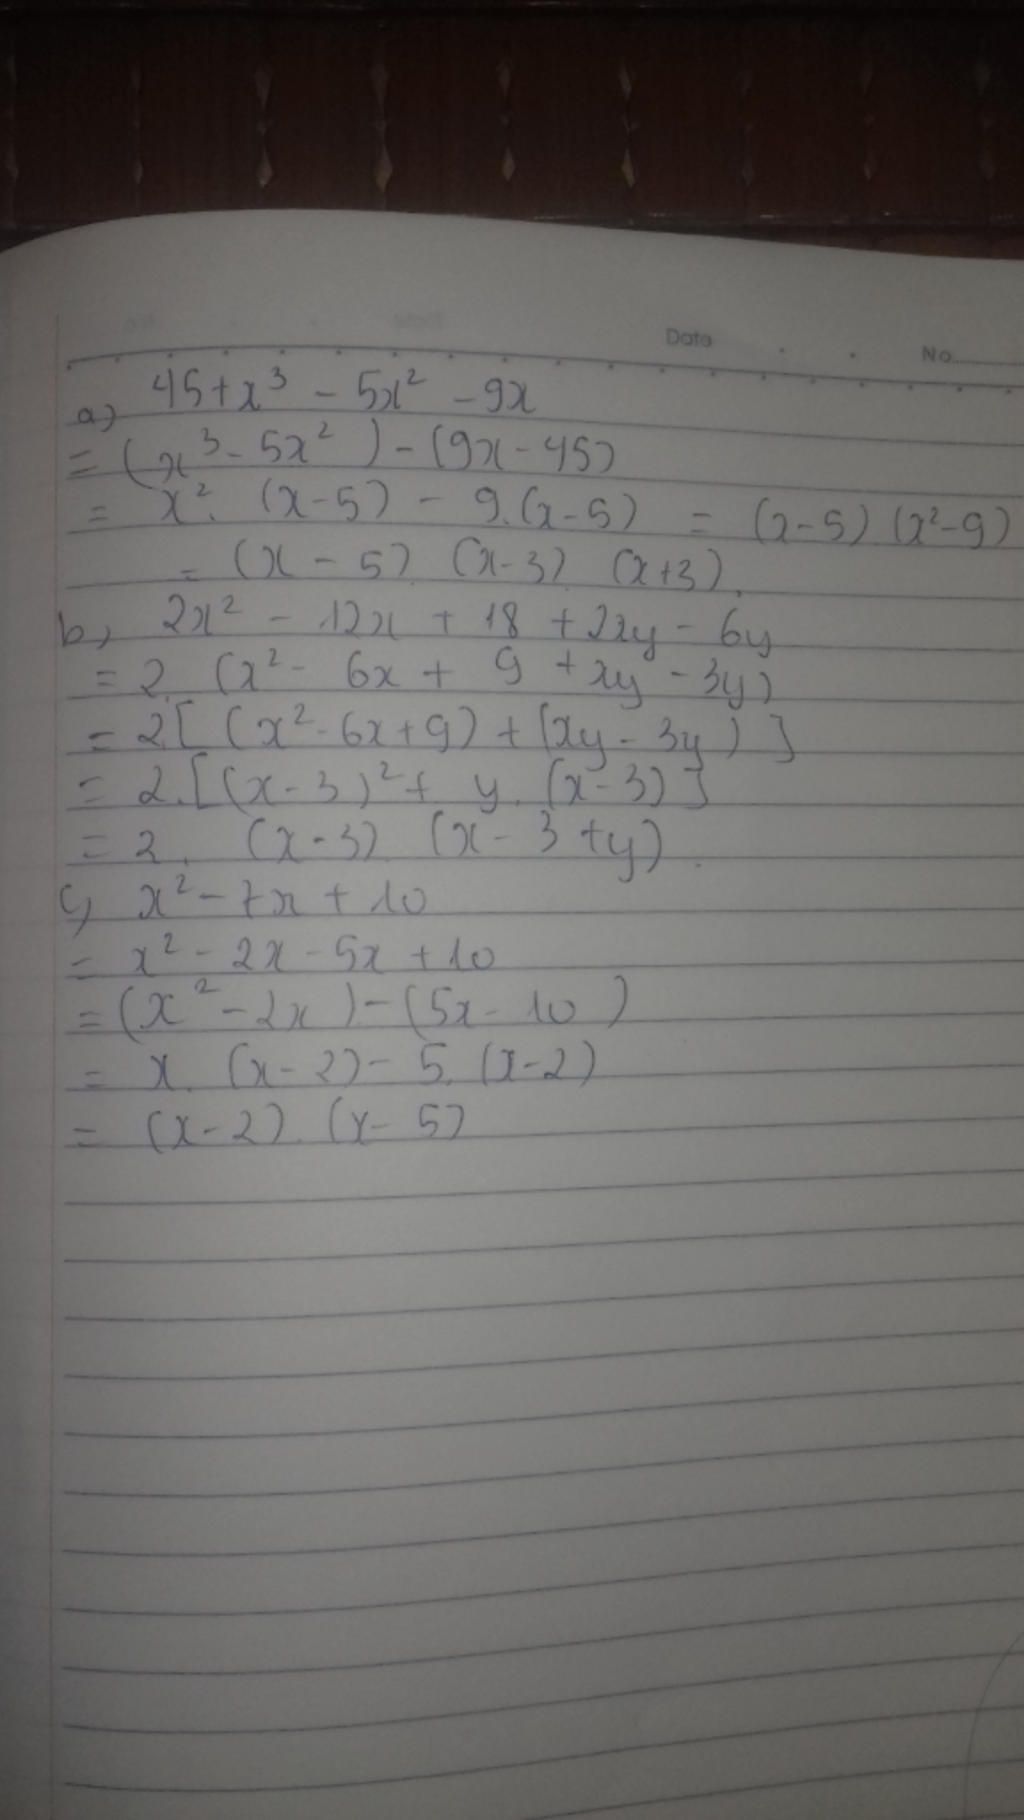 Data . . No.
a) 45+x³ - 5x² - 9x
= (x³ - 5x²) - (9x - 45)
= x². (x-5) - 9.(x-5) = (x-5) (x²-9)
= (x - 5). (x-3) (x+3).
b) 2x² - 12x + 18 + 2xy - 6y
= 2. (x² - 6x + 9 + xy - 3y)
= 2.[ (x² - 6x+9) + (xy - 3y) ]
= 2.[(x-3)² + y. (x-3)]
= 2. (x-3) (x - 3 +y).
c) x² - 7x + 10
= x² - 2x - 5x + 10
= (x² - 2x) - (5x - 10)
= x. (x-2) - 5. (x-2)
= (x-2). (x-5)